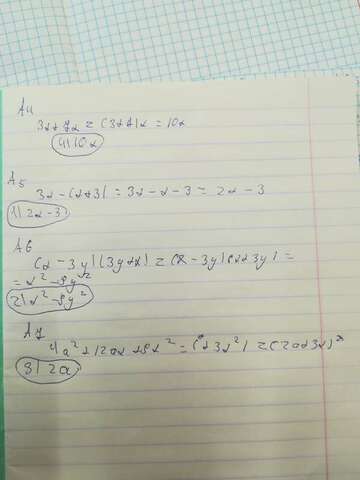 А4
3x+7x = (3+7)x = 10x
4) 10x
А5
3x-(x+3) = 3x-x-3 = 2x-3
1) 2x-3
А6
(x-3y)(3y+x) = (x-3y)(x+3y) =
= x²-9y²
2) x²-9y²
А7
4a²+12ax+9x² = (2a+3x)²
3) 2a